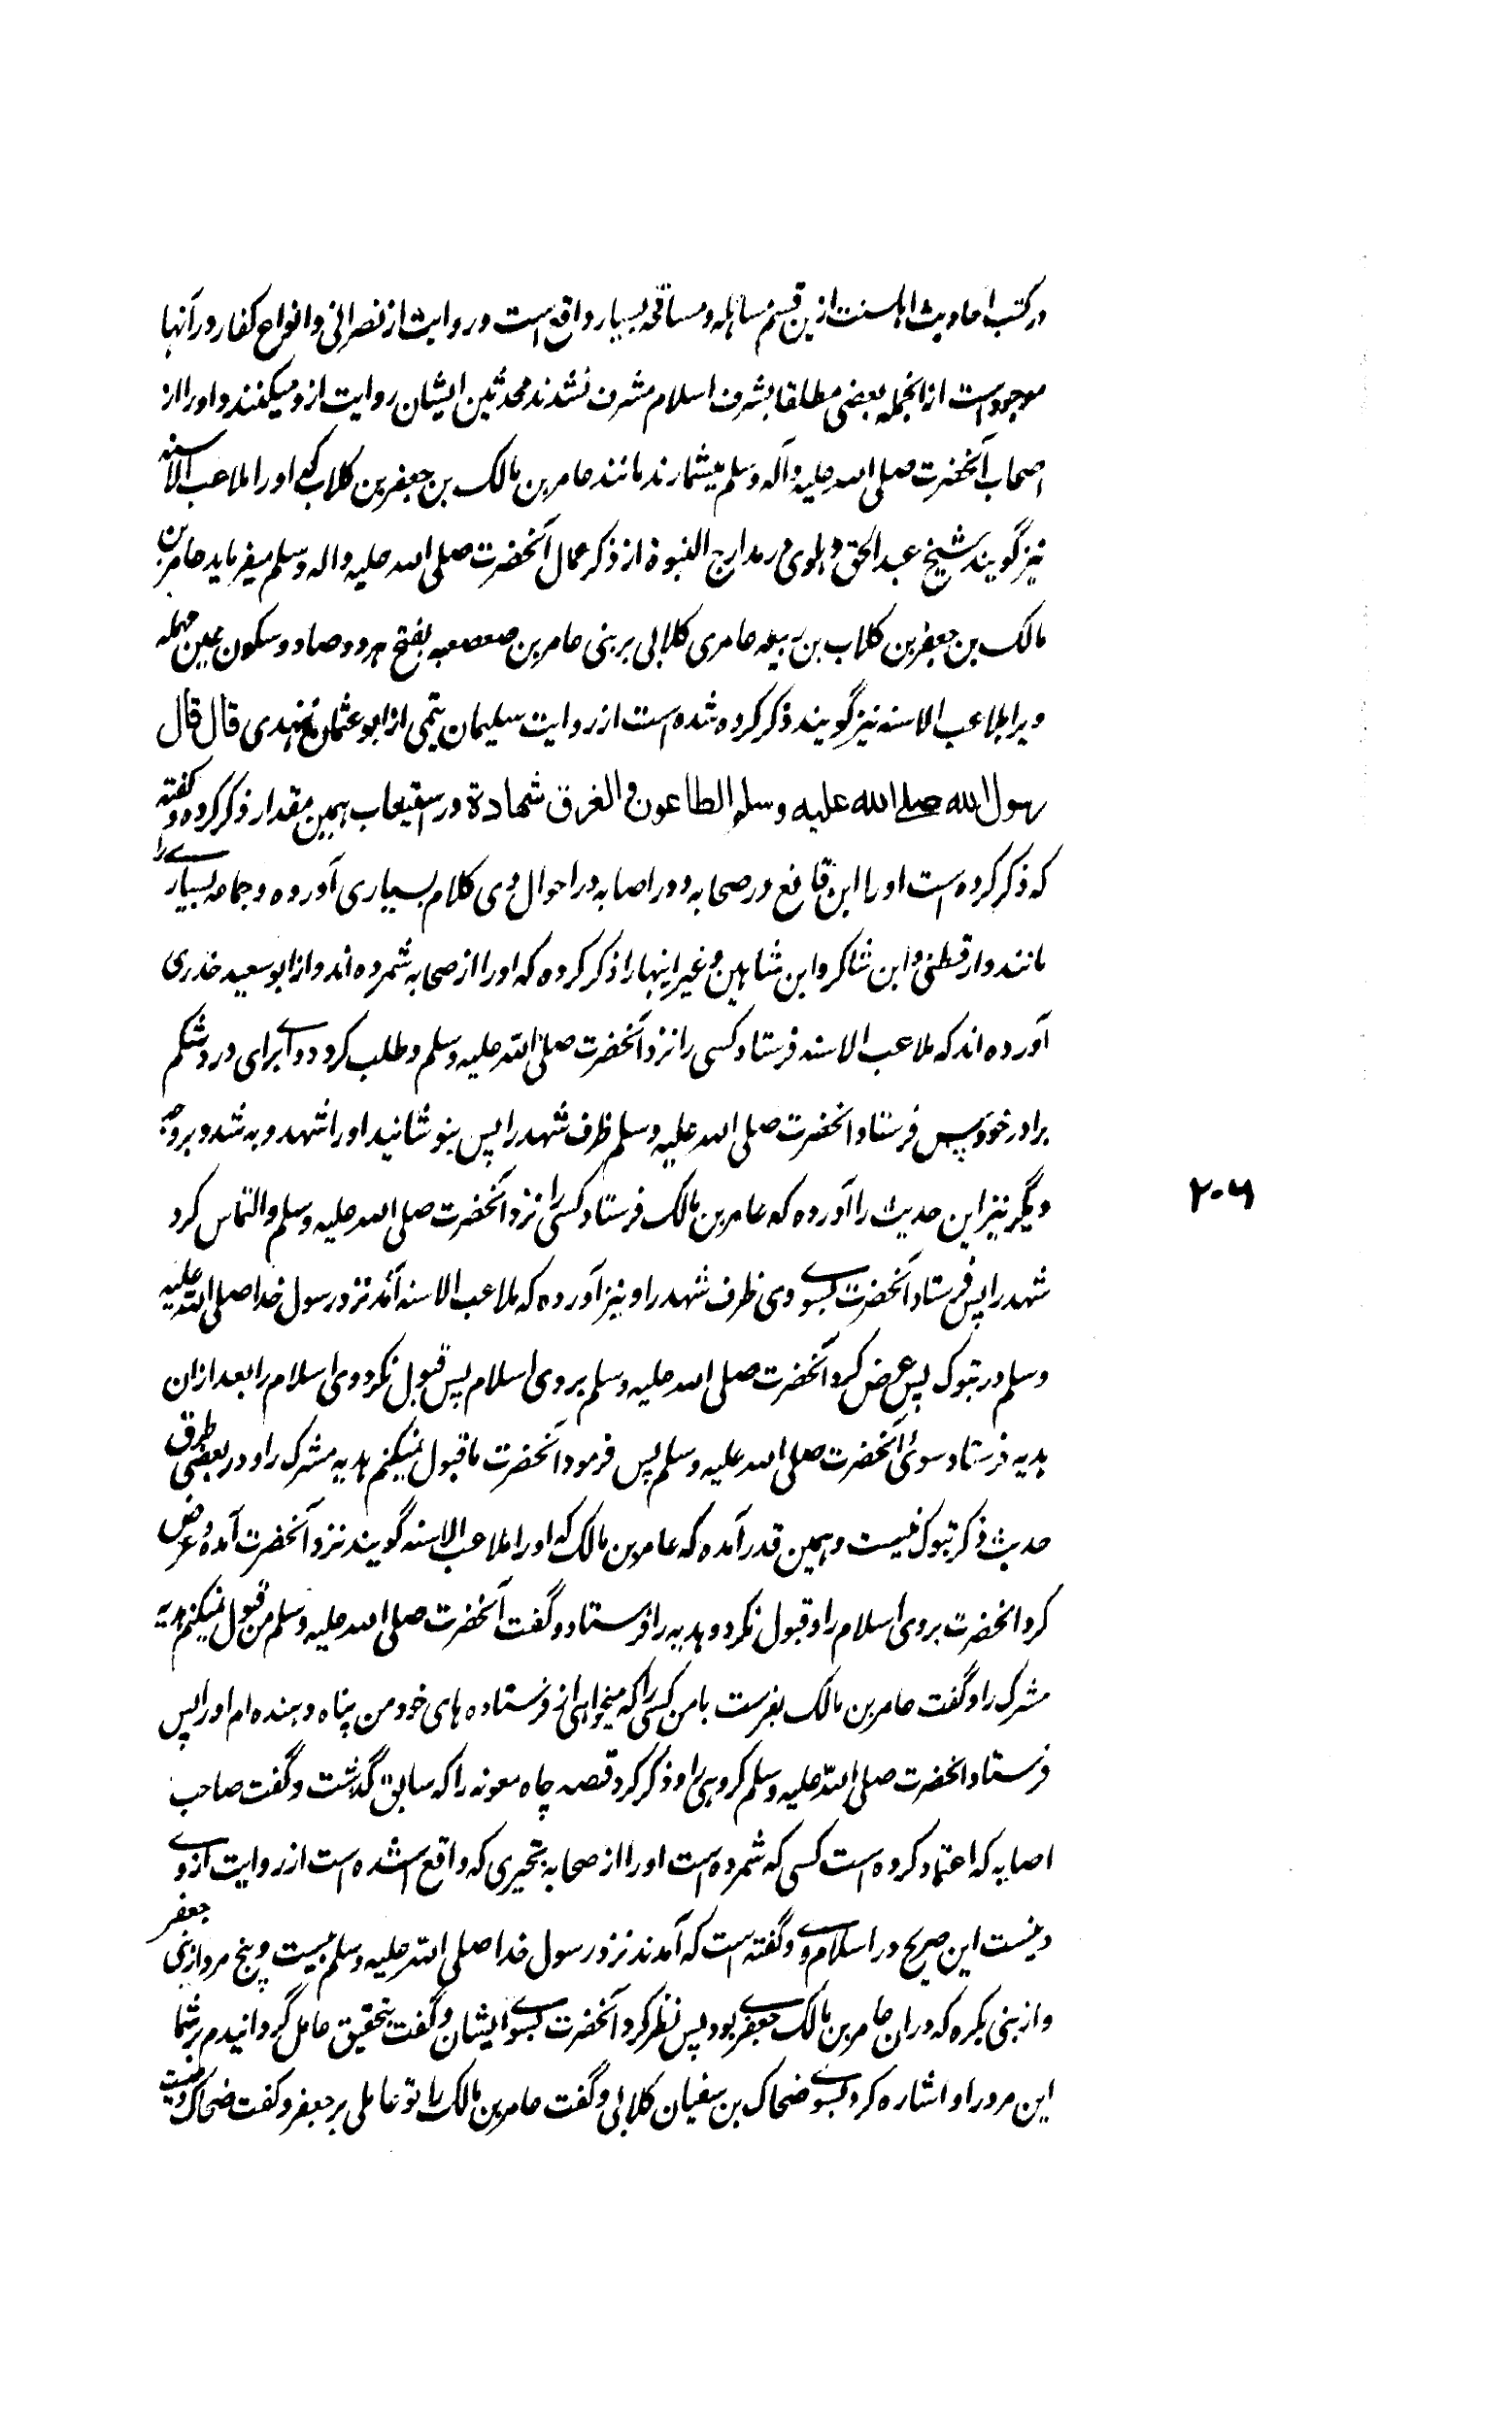 در کتب احادیث اہلسنت ازین قسم مساہلہ و مسامحہ بسیار واقع است و روایت از نصرانی و انواع کفار در آنها
موجود است از انجملہ بعضی مطلقا بشرف اسلام مشرف نشدند محدثین ایشان روایت ازو میکنند و او را از
اصحاب آنحضرت صلی الله علیه وآله وسلم میشمارند مانند عامر بن مالک بن جعفر بن کلاب که او را ملاعب الاسنه
نیز گویند شیخ عبد الحق دہلوی در مدارج النبوة از ذکر عمال آنحضرت صلی الله علیه واله وسلم میفرماید عامر بن
مالک بن جعفر بن کلاب بن ربیعہ عامری کلابی بر بنی عامر بن صعصعہ بفتح ہر دو صاد و سکون عین مہملہ
ویرا ملاعب الاسنہ نیز گویند ذکر کردہ شدہ است از روایت سلیمان تیمی از ابو عثمان نہدی قال قال
رسول الله صلے الله علیه وسلم الطاعون و الغرق شهادة در استیعاب ہمین مقدار ذکر کردہ و گفتہ
کہ ذکر کردہ است او را ابن قانع در صحابہ و در اصابہ در احوال وی کلام بسیاری آوردہ و جماعہ بسیارے را
مانند دارقطنی و ابن شاکر و ابن شاہین و غیر اینها را ذکر کردہ کہ او را از صحابہ شمردہ اند و از ابو سعید خدری
آوردہ اند کہ ملاعب الاسنہ فرستاد کسی را نزد آنحضرت صلی الله علیه وسلم و طلب کرد دواے برای درد شکم
برادر خود پس فرستاد انحضرت صلی الله علیه وسلم ظرف شهد را پس بنوشانید او را شهد و بہ شد و بروجہ
دیگر نیز این حدیث را آوردہ کہ عامر بن مالک فرستاد کسی را نزد آنحضرت صلی الله علیه وسلم و التماس کرد
شهد را پس فرستاد آنحضرت بسوے وی ظرف شهد را و نیز آوردہ کہ ملاعب الاسنہ آمد نزد رسول خدا صلی الله علیه
وسلم در تبوک پس عرض کرد آنحضرت صلی الله علیه وسلم بر وی اسلام پس قبول نکرد وی اسلام را بعد ازان
ہدیہ فرستاد سوی آنحضرت صلی الله علیه وسلم پس فرمود آنحضرت ما قبول نمیکنم ہدیہ مشرک را و در بعضی طرق
حدیث ذکر تبوک نیست و ہمین قدر آمدہ کہ عامر بن مالک کہ او را ملاعب الاسنہ گویند نزد آنحضرت آمدہ و عرض
کرد انحضرت بر وی اسلام را و قبول نکرد و ہدیہ را فرستاد و گفت آنحضرت صلی الله علیه وسلم من قبول نمیکنم ہدیہ
مشرک را و گفت عامر بن مالک بفرست با من کسی را کہ میخواہی از فرستادہ ہای خود من پناہ دہندہ ام او را پس
فرستاد انحضرت صلی الله علیه وسلم گروہی را و ذکر کرد قصہ چاہ معونہ را کہ سابق گذشت و گفت صاحب
اصابہ کہ اعتماد کردہ است کسی کہ شمردہ است او را از صحابہ بتحیری کہ واقع شدہ است از روایت از وے
و نیست این صریح در اسلام وے و گفتہ است کہ آمدند نزد رسول خدا صلی الله علیه وسلم بیست و پنج مرد از بنی جعفر
و از بنی بکرہ کہ دران عامر بن مالک جعفرے بود پس نظر کرد آنحضرت بسوے ایشان و گفت بتحقیق عامل گردانیدم بر شما
این مرد را و اشارہ کرد بسوے ضحاک بن سفیان کلابی و گفت عامر بن مالک را تو عاملی بر جعفر و گفت ضحاک
۲۰۶